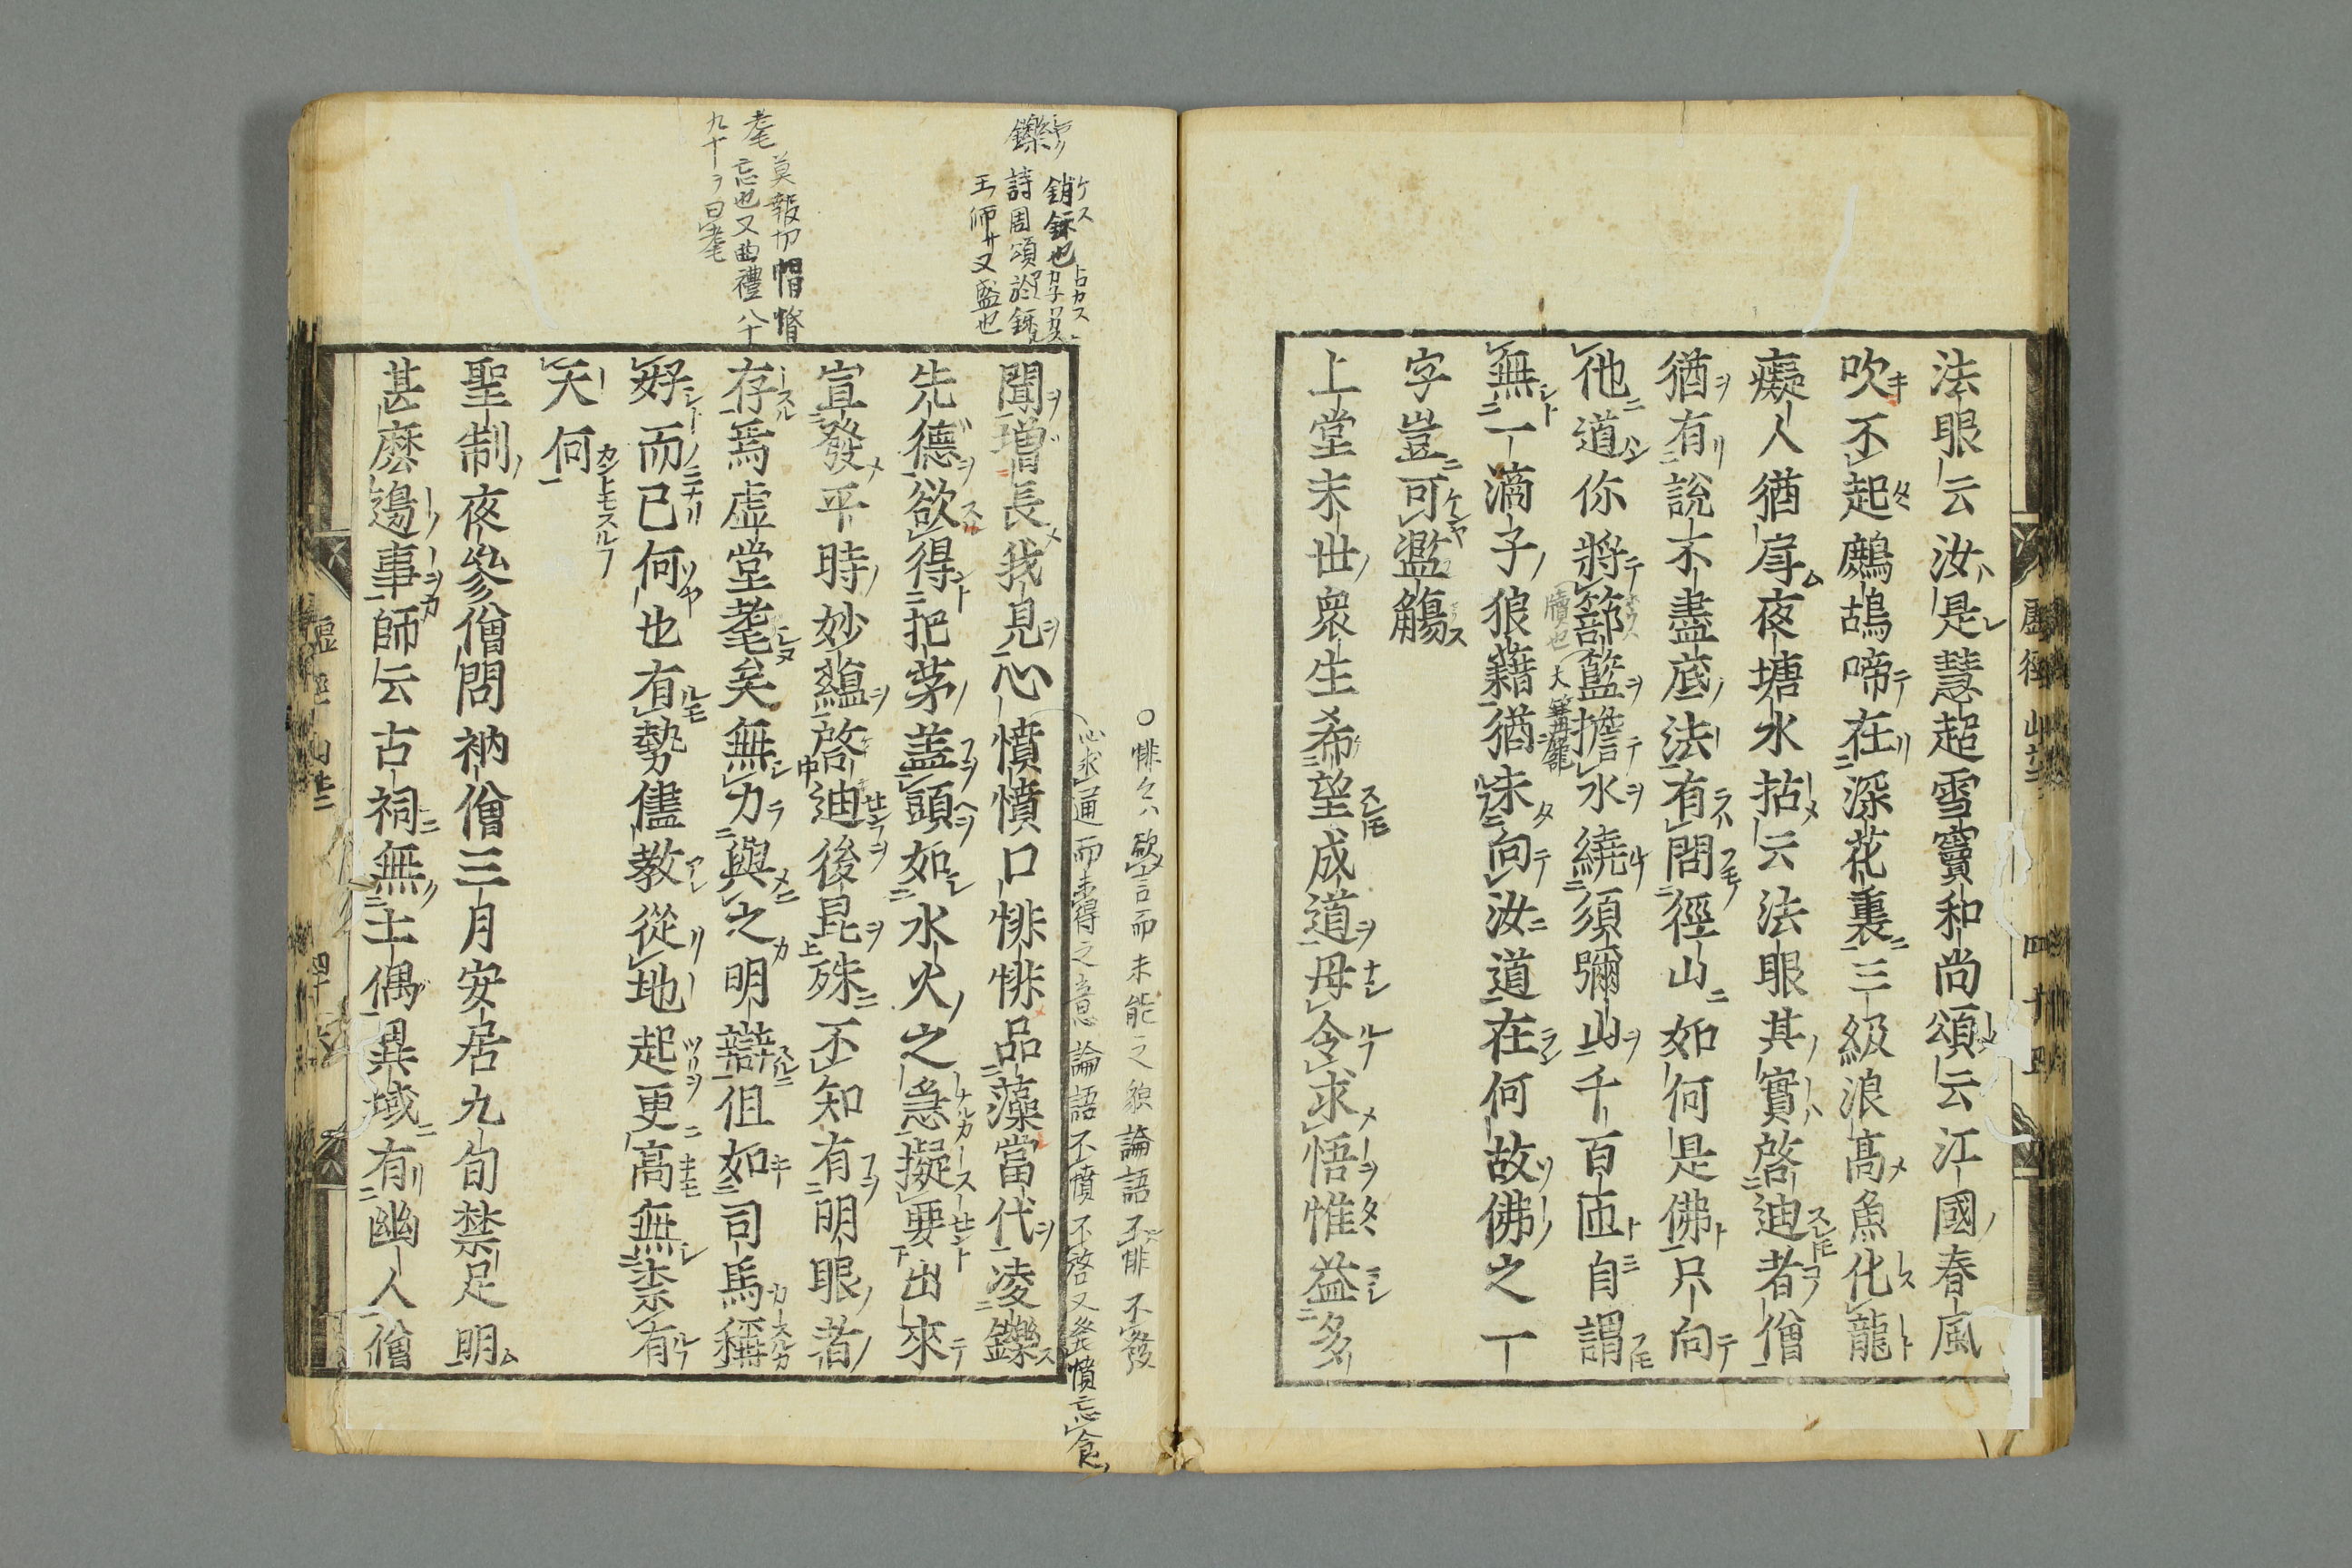 法眼云汝是慧超雪竇和尚頌云江國春風
吹不起鷓鴣啼在深花裏三級浪高魚化龍
癡人猶戽夜塘水拈云法眼其實啓迪者僧
猶有說不盡底法有問徑山如何是佛只向
他道你將篰籃擔水繞須彌山千百匝自謂
無一滴子狼藉猶未向汝道在何故佛之一
字豈可濫觴
上堂末世衆生希望成道毋令求悟惟益多
聞增長我見心憤憤口悱悱品藻當代凌鑠
先德欲得把茅蓋頭如水火之急擬要出來
宣發平時妙蘊啓迪後昆殊不知有明眼者
存焉虛堂耄矣無力與之明辯但如司馬稱
好而已何也有勢儘教從地起更高無柰有
天何
聖制夜參僧問衲僧三月安居九旬禁足明
甚麽邊事師云古祠無土偶異域有幽人僧
○悱々ハ欲言而未能之貌論語不悱不發
心求通而未得之意論語不憤不啓又發憤忘食
鑠
銷鑠也
詩周頌於鑠
王師又盛也
耄
莫報切帽瞀
忘也又曲禮八十
九十ヲ曰耄